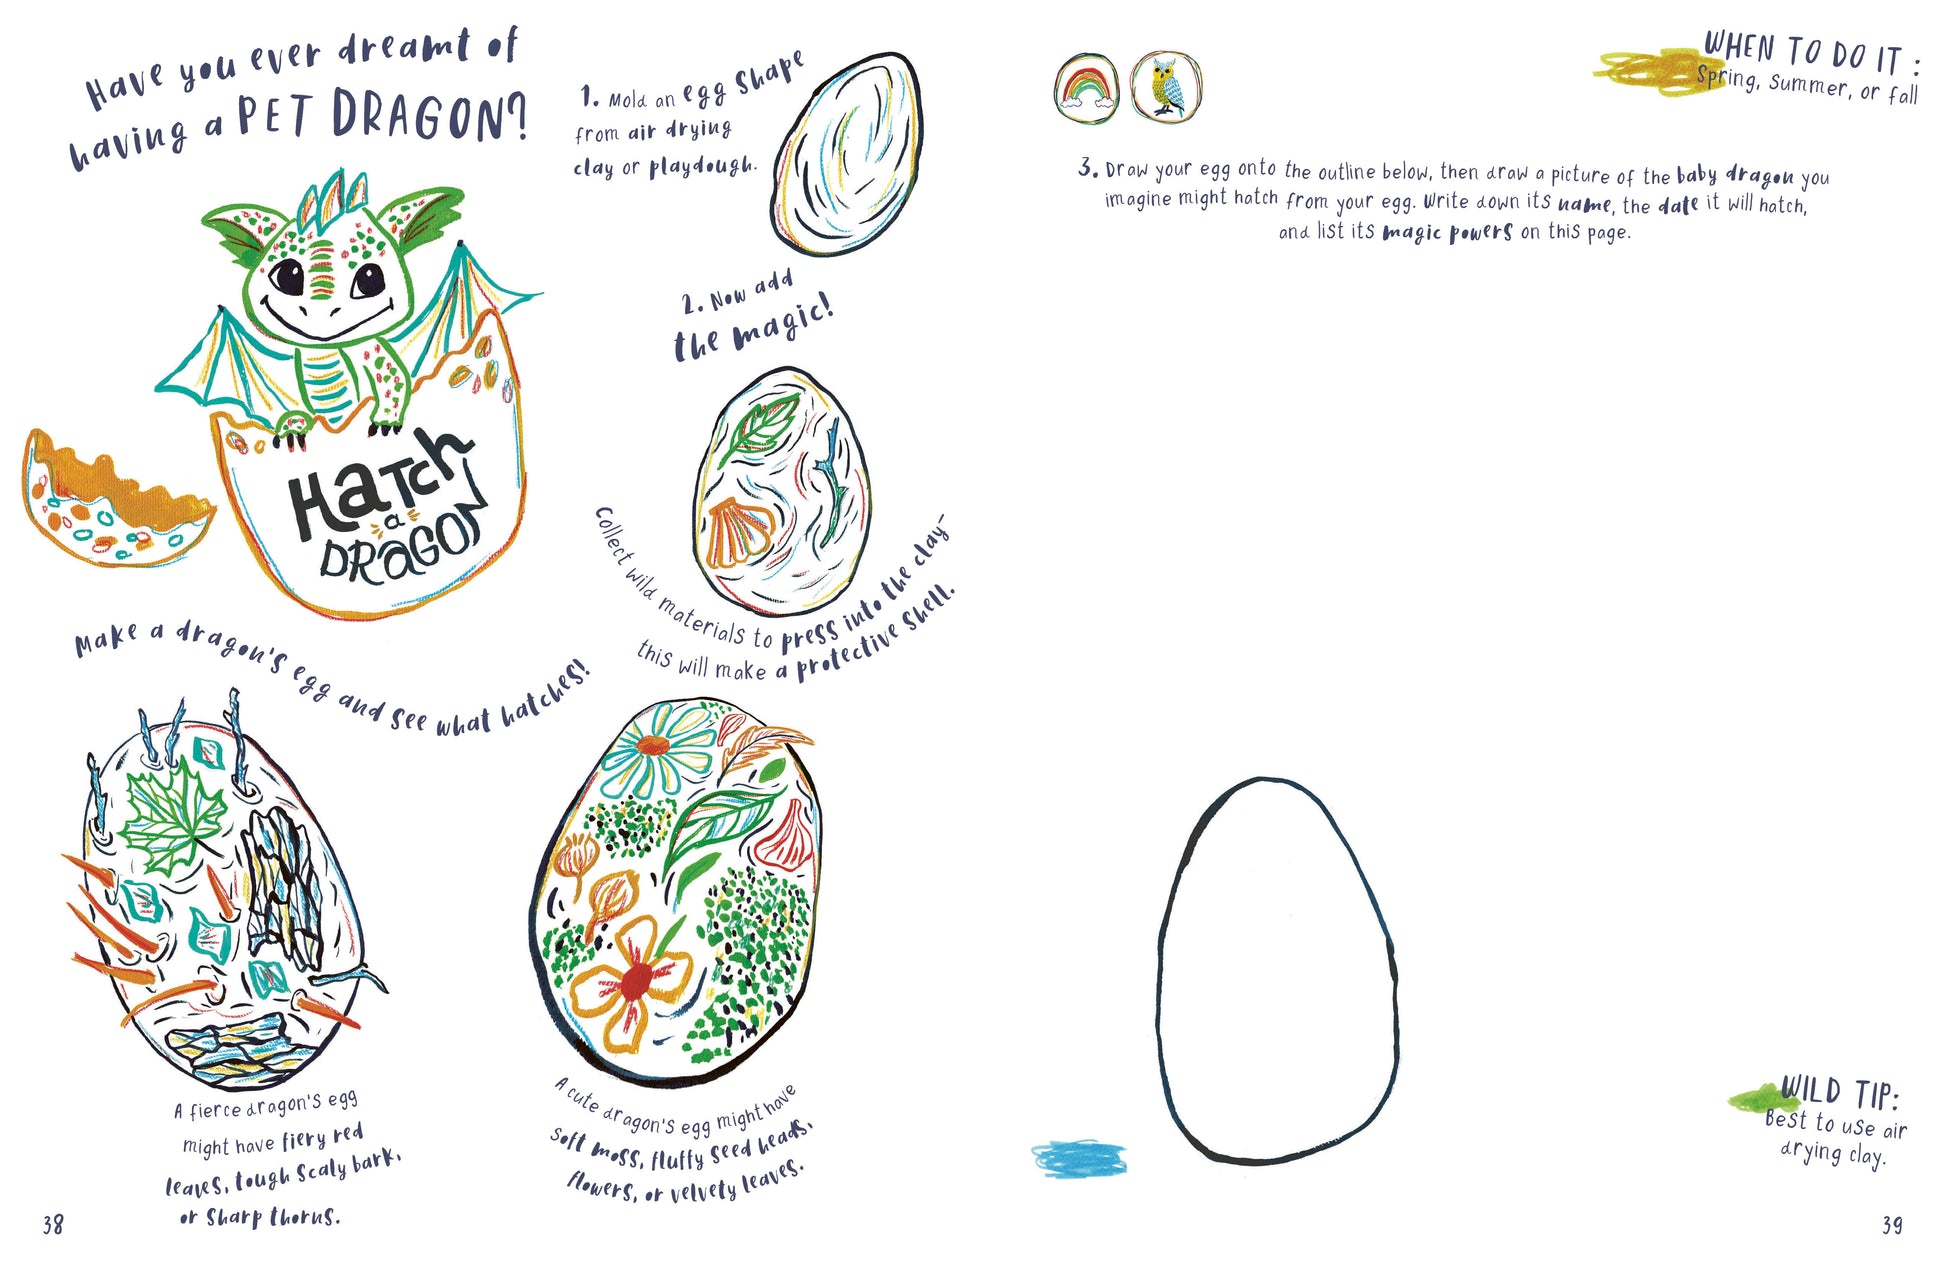 Have you ever dreamt of
having a PET DRAGON?
Hatch
a
DRAGON
Make a dragon's egg and see what hatches!
1. Mold an egg shape
from air drying
clay or playdough.
2. Now add
the magic!
Collect wild materials to press into the clay–
this will make a protective shell.
A fierce dragon's egg
might have fiery red
leaves, tough scaly bark,
or sharp thorns.
A cute dragon's egg might have
soft moss, fluffy seed heads,
flowers, or velvety leaves.
38
WHEN TO DO IT:
Spring, summer, or fall
3. Draw your egg onto the outline below, then draw a picture of the baby dragon you
imagine might hatch from your egg. Write down its name, the date it will hatch,
and list its magic powers on this page.
WILD TIP:
Best to use air
drying clay.
39